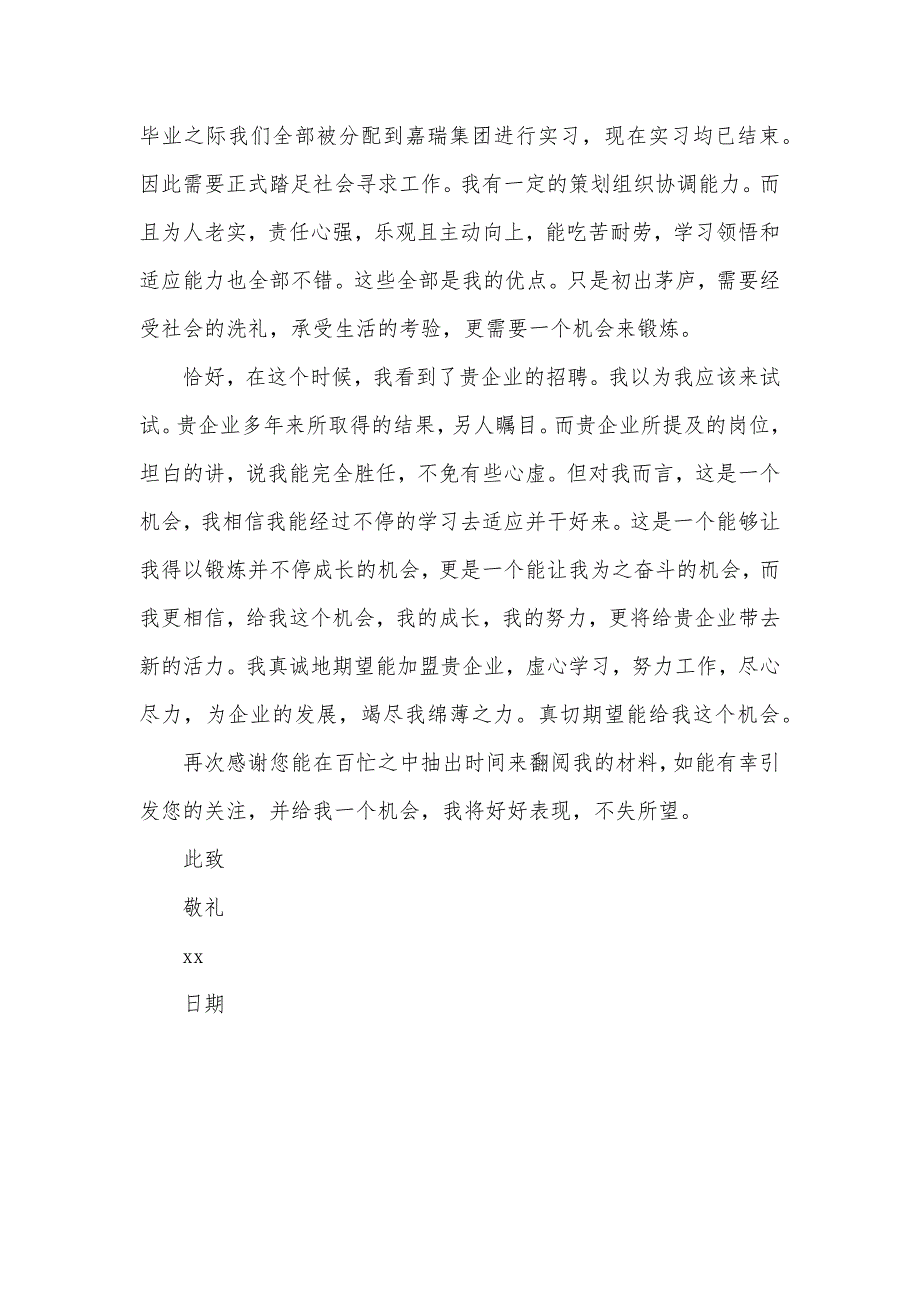 毕业之际我们全部被分配到嘉瑞集团进行实习，现在实习均已结束。
因此需要正式踏足社会寻求工作。我有一定的策划组织协调能力。而
且为人老实，责任心强，乐观且主动向上，能吃苦耐劳，学习领悟和
适应能力也全部不错。这些全部是我的优点。只是初出茅庐，需要经
受社会的洗礼，承受生活的考验，更需要一个机会来锻炼。
恰好，在这个时候，我看到了贵企业的招聘。我以为我应该来试
试。贵企业多年来所取得的结果，另人瞩目。而贵企业所提及的岗位，
坦白的讲，说我能完全胜任，不免有些心虚。但对我而言，这是一个
机会，我相信我能经过不停的学习去适应并干好来。这是一个能够让
我得以锻炼并不停成长的机会，更是一个能让我为之奋斗的机会，而
我更相信，给我这个机会，我的成长，我的努力，更将给贵企业带去
新的活力。我真诚地期望能加盟贵企业，虚心学习，努力工作，尽心
尽力，为企业的发展，竭尽我绵薄之力。真切期望能给我这个机会。
再次感谢您能在百忙之中抽出时间来翻阅我的材料，如能有幸引
发您的关注，并给我一个机会，我将好好表现，不失所望。
此致
敬礼
xx
日期